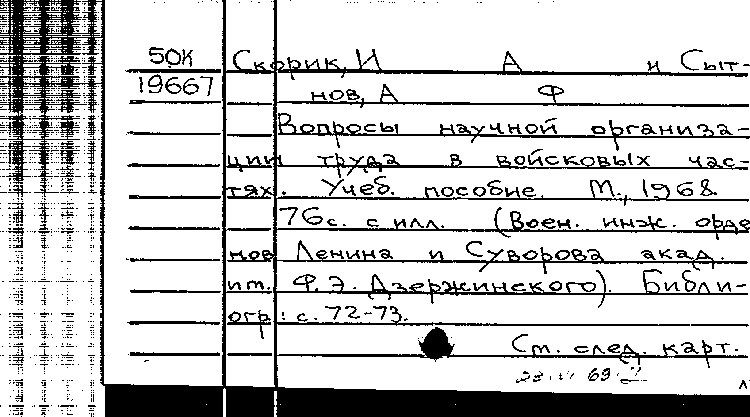 50К Скорик, И А и Сыт-
19667 нов, А Ф
Вопросы научной организа-
ции труда в войсковых час-
тях. Учеб. пособие. М., 1968.
76с. с илл. (Воен. инж. орде
нов Ленина и Суворова акад.
им. Ф.Э. Дзержинского). Библи-
огр: с. 72-73.
См. след. карт.